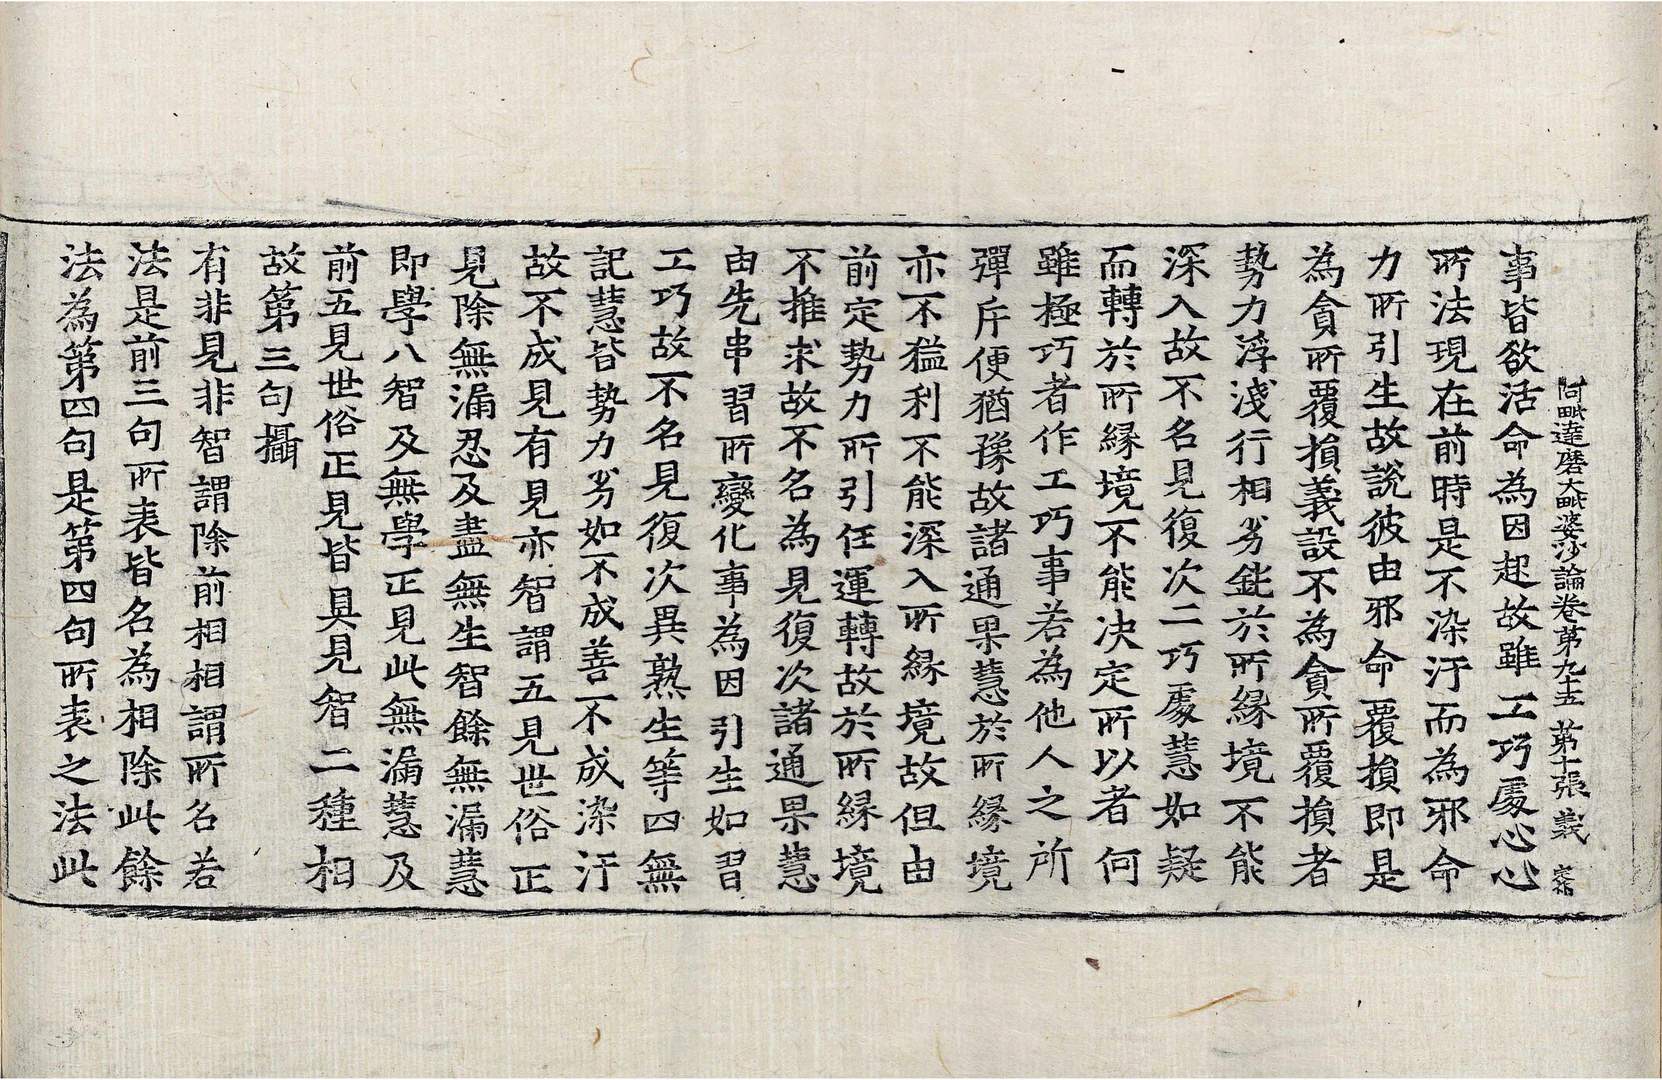 阿毗達磨大毗婆沙論卷第九十五 第十張 義
事皆欲活命為因起故雖工巧處心心
所法現在前時是不染汙而為邪命
力所引生故說彼由邪命覆損即是
為貪所覆損義設不為貪所覆損者
勢力浮淺行相劣鈍於所緣境不能
深入故不名見復次二巧處慧如疑
而轉於所緣境不能決定所以者何
雖極巧者作工巧事若為他人之所
彈斥便猶豫故諸通果慧於所緣境
亦不猛利不能深入所緣境故但由
前定勢力所引任運轉故於所緣境
不推求故不名為見復次諸通果慧
由先串習所變化事為因引生如習
工巧故不名見復次異熟生等四無
記慧皆勢力劣如不成善不成染汙
故不成見有見亦智謂五見世俗正
見除無漏忍及盡無生智餘無漏慧
即學八智及無學正見此無漏慧及
前五見世俗正見皆具見智二種相
故第三句攝
有非見非智謂除前相相謂所名若
法是前三句所表皆名為相除此餘
法為第四句是第四句所表之法此